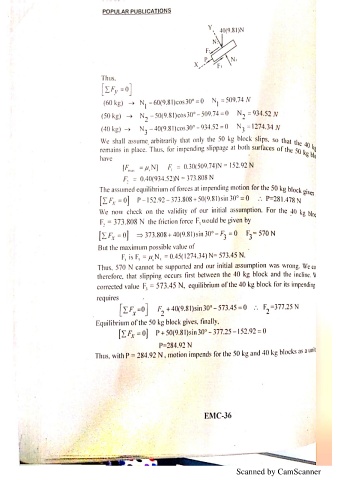 POPULAR PUBLICATIONS
Y 40(9.81)N
N₂
F₂
P
X F₃ N₃
Thus,
[ΣFy = 0]
(60 kg) → N₁ – 60(9.81)cos30° = 0 N₁ = 509.74 N
(50 kg) → N₂ – 50(9.81)cos30° – 509.74 = 0 N₂ = 934.52 N
(40 kg) → N₃ – 40(9.81)cos30° – 934.52 = 0 N₃ = 1274.34 N
We shall assume arbitrarily that only the 50 kg block slips, so that the 40 kg
remains in place. Thus, for impending slippage at both surfaces of the 50 kg
have
[Fmax = μsN] F₁ = 0.30(509.74)N = 152.92 N
F₂ = 0.40(934.52)N = 373.808 N
The assumed equilibrium of forces at impending motion for the 50 kg block gives
[ΣFx = 0] P – 152.92 – 373.808 + 50(9.81) sin 30° = 0 ∴ P=281.478 N
We now check on the validity of our initial assumption. For the 40 kg
F₂ = 373.808 N the friction force F₃ would be given by
[ΣFx = 0] ⇒ 373.808 + 40(9.81) sin 30° – F₃ = 0 F₃ = 570 N
But the maximum possible value of
F₃ is F₃ = μsN₃ = 0.45(1274.34) N= 573.45 N.
Thus, 570 N cannot be supported and our initial assumption was wrong. We
therefore, that slipping occurs first between the 40 kg block and the incline.
corrected value F₃ = 573.45 N, equilibrium of the 40 kg block for its impending
requires
[ΣFx = 0] F₂ + 40(9.81)sin 30° – 573.45 = 0 ∴ F₂ = 377.25 N
Equilibrium of the 50 kg block gives, finally,
[ΣFx = 0] P + 50(9.81)sin 30° – 377.25 – 152.92 = 0
P=284.92 N
Thus, with P = 284.92 N, motion impends for the 50 kg and 40 kg blocks as a unit
EMC-36
Scanned by CamScanner